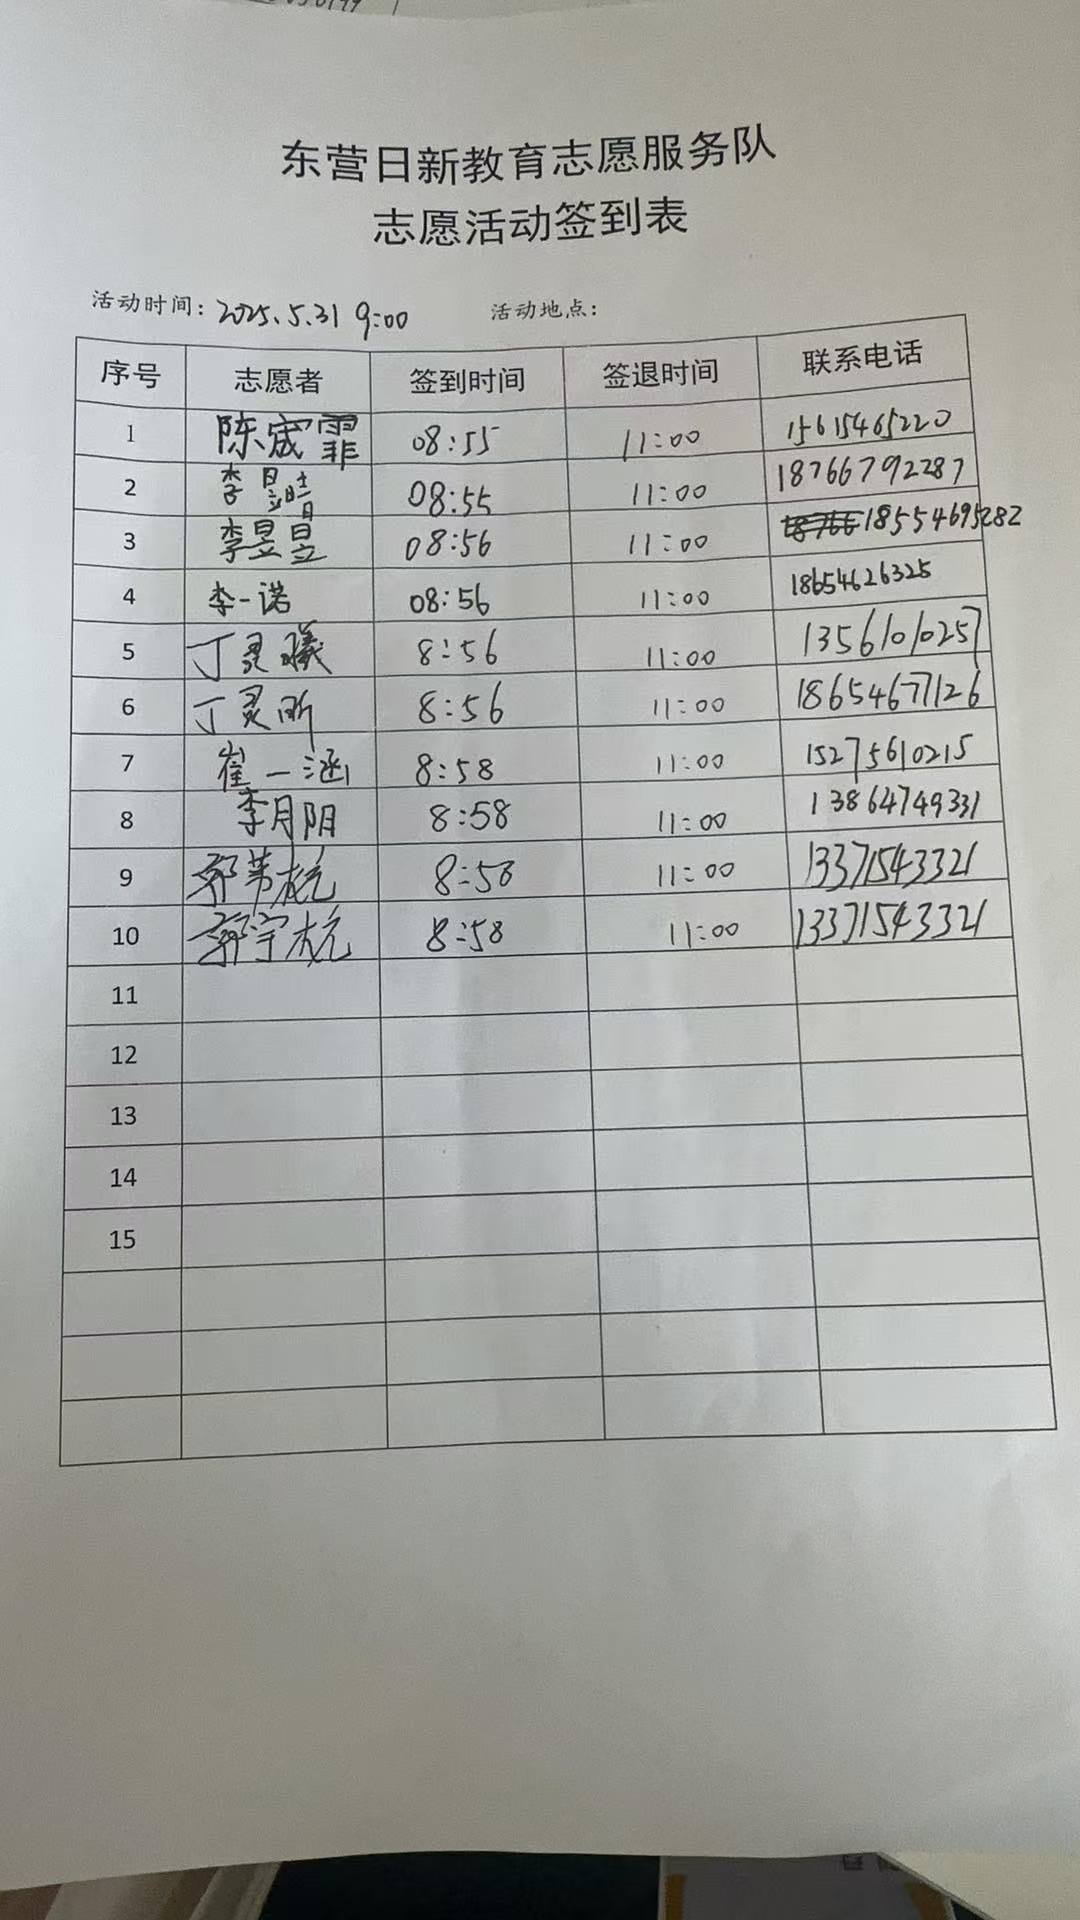 东营日新教育志愿服务队
志愿活动签到表
活动时间: 2025.5.31 9:00 活动地点:
序号 志愿者 签到时间 签退时间 联系电话
1 陈宬霏 08:55 11:00 15615465220
2 李昱晴 08:55 11:00 18766792287
3 李昱昱 08:56 11:00 18554695282
4 李一诺 08:56 11:00 18654626325
5 丁灵曦 8:56 11:00 13561010257
6 丁灵昕 8:56 11:00 18654677126
7 崔一涵 8:58 11:00 15275610215
8 李月阴 8:58 11:00 13864749331
9 8:58 11:00 13371543321
10 郭宇杭 8:58 11:00 13371543321
11
12
13
14
15